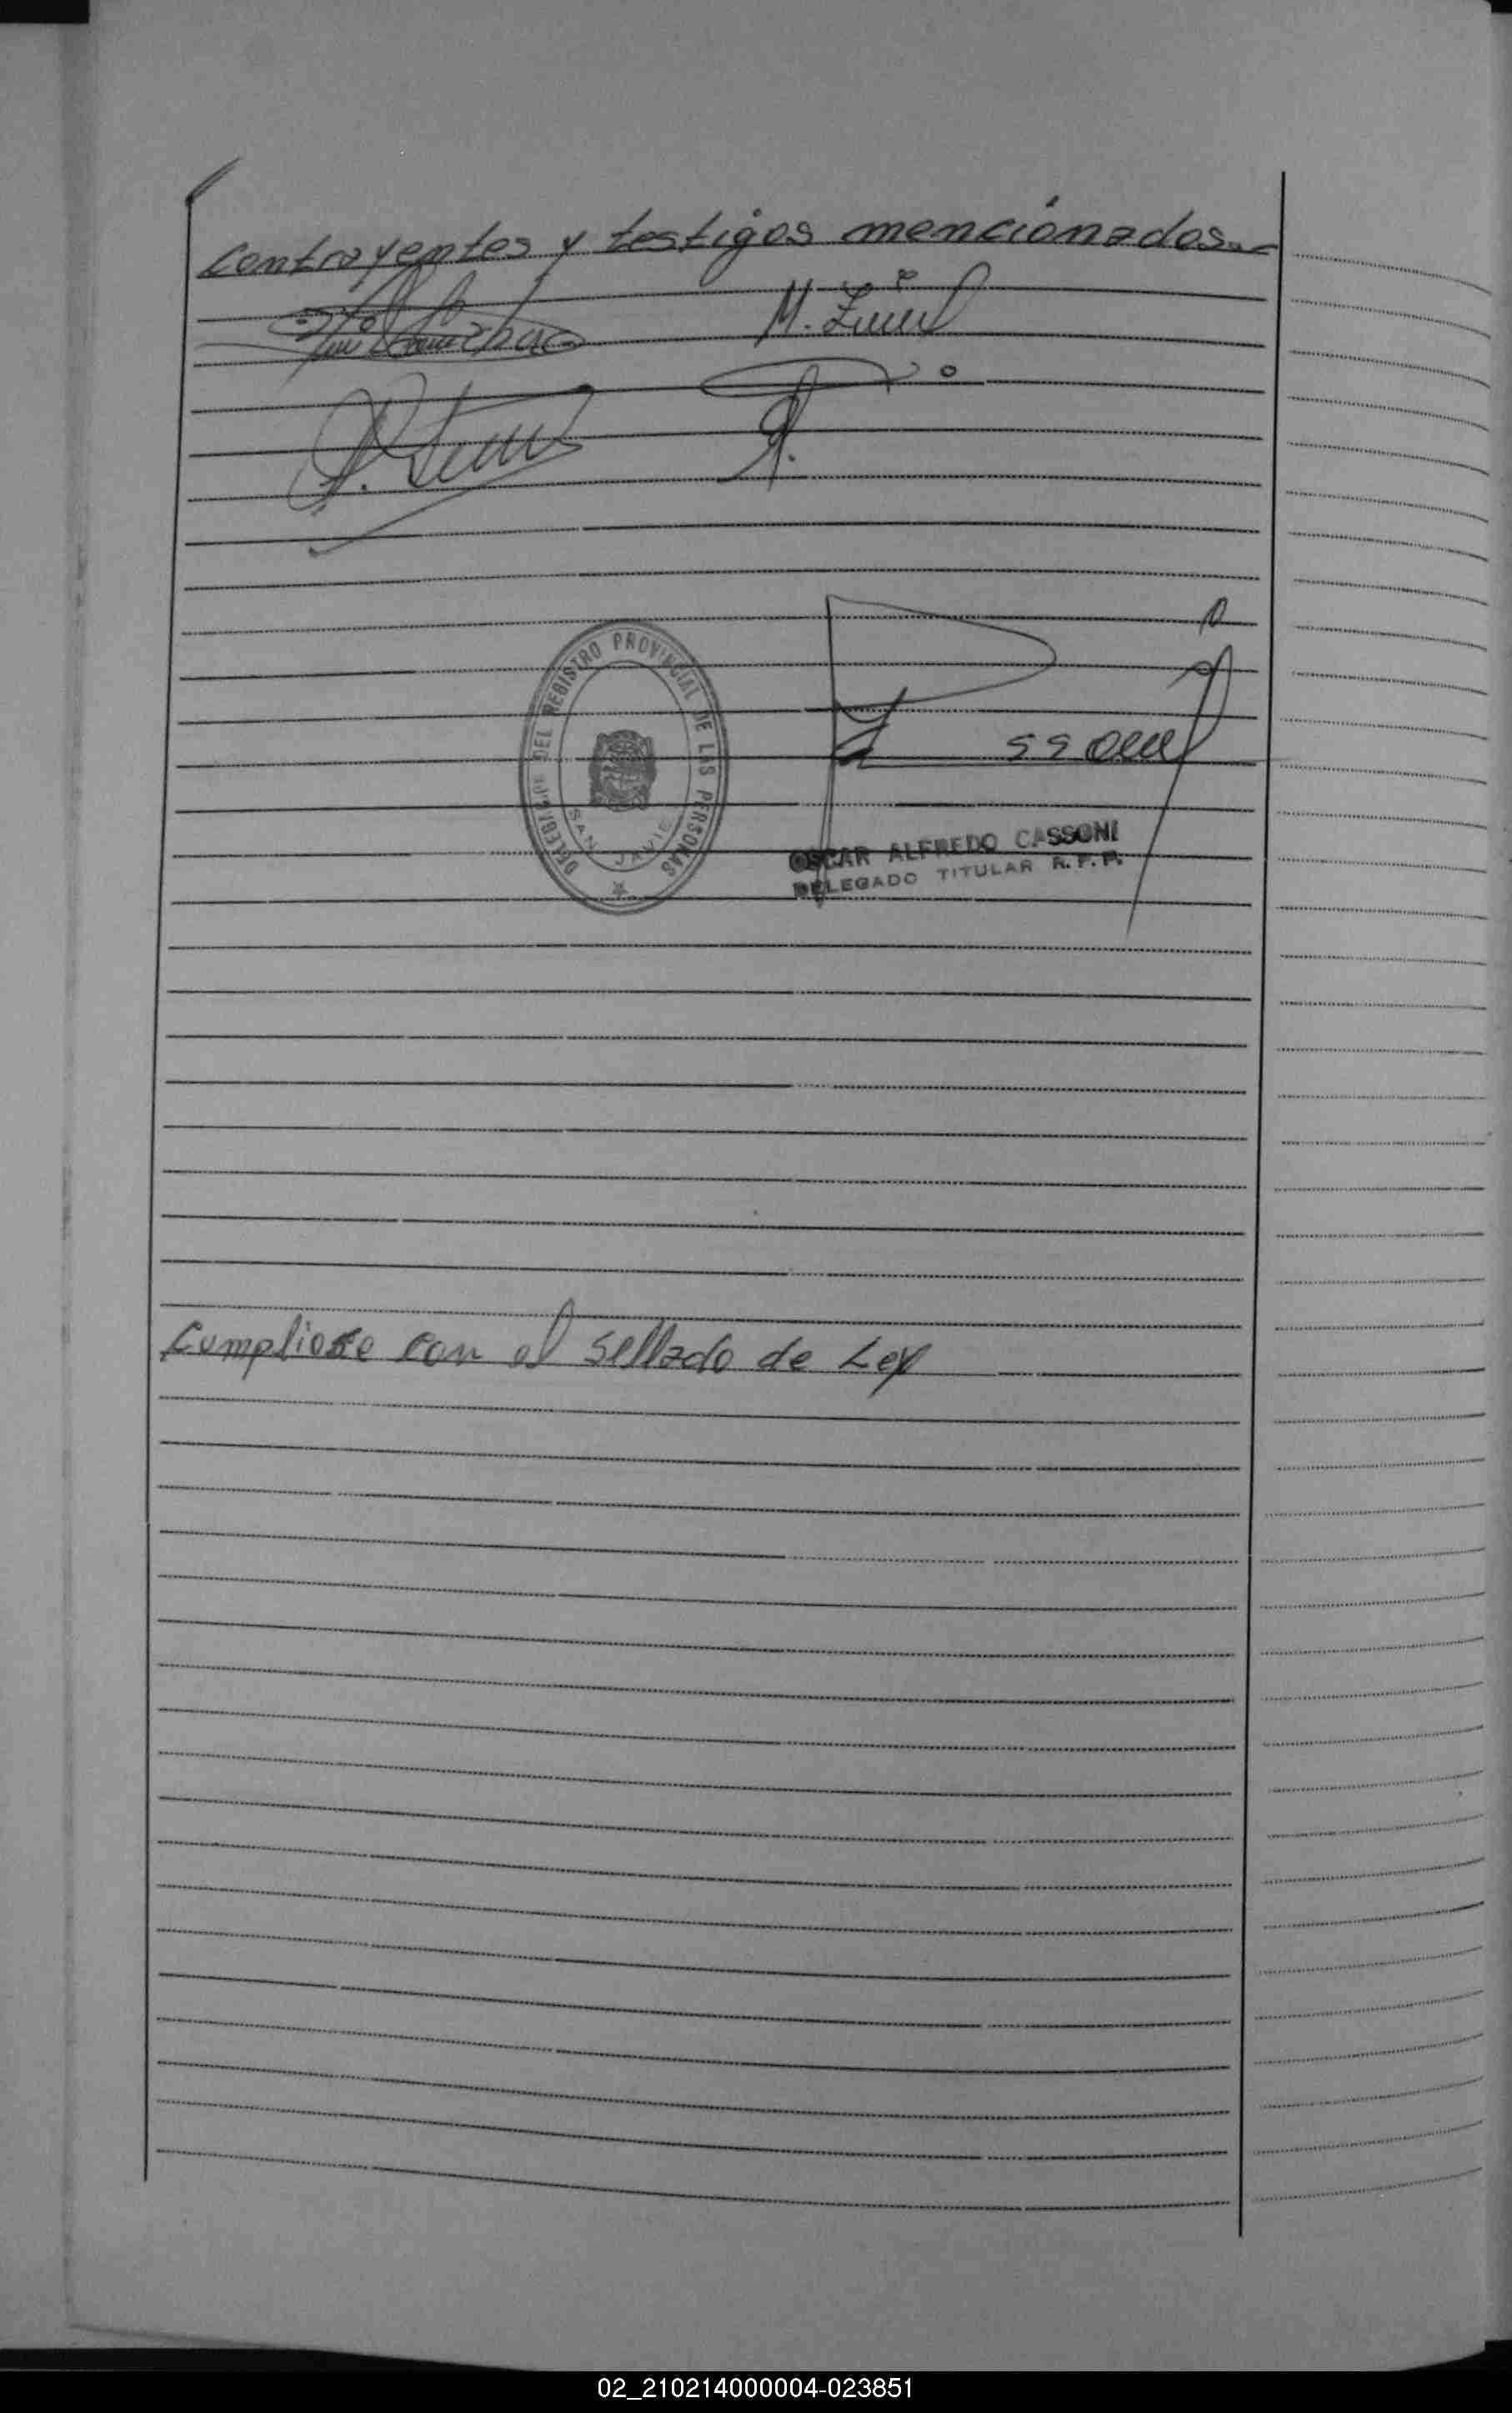 contrayentes y testigos mencionados.-
DEL REGISTRO PROVINCIAL DE LAS PERSONAS
SAN JAVIE
OSCAR ALFREDO CASSONI
DELEGADO TITULAR R. P. P.
Cumpliose con el sellado de Ley
02_210214000004-023851